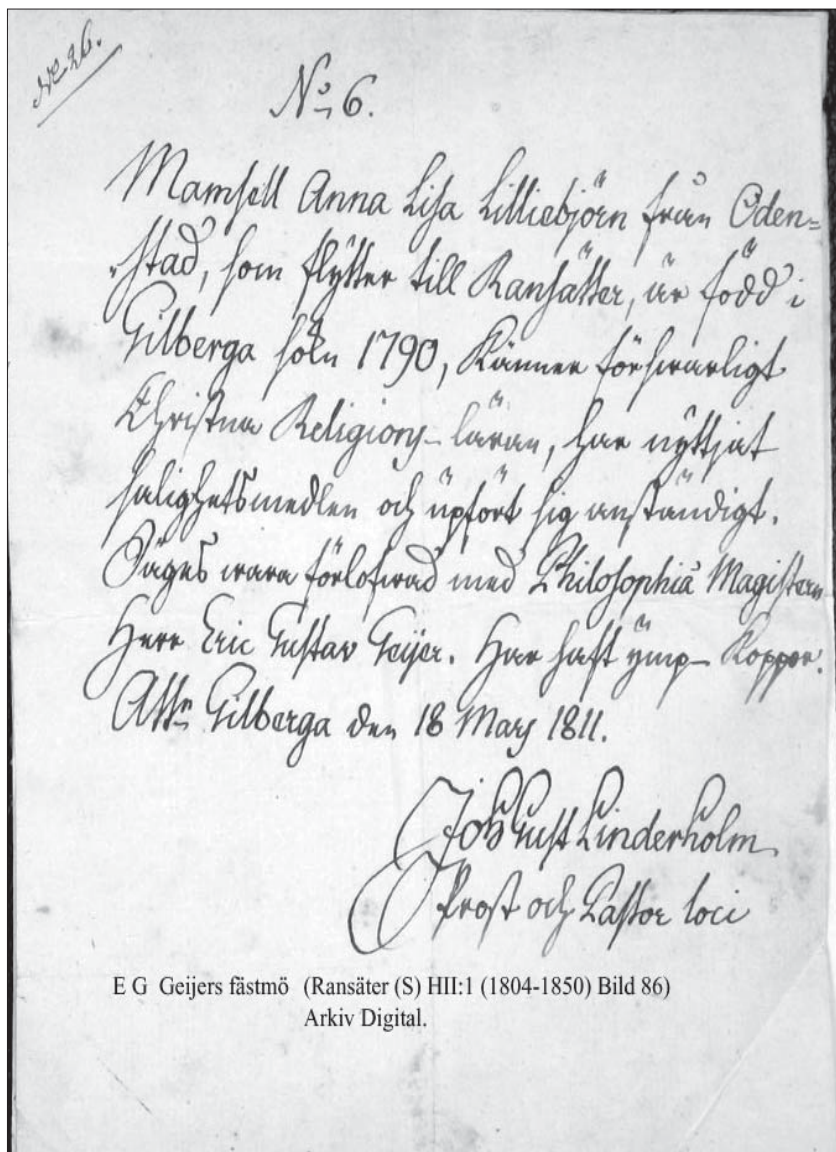 No 26.
No 6.
Mamsell Anna Lisa Lilliebjörn från Öden=
=stad, som flytter till Ransätter, är född i
Gilberga sökn 1790, Känner försvarligt
Christna Religions-läran, har nyttjat
salighetsmedlen och upfört sig anständigt.
Säges wara förlofwad med Philosophiæ Magistern
Herr Eric Gustav Geijer. Har haft ymp-Koppor.
Att. Gilberga den 18 Mars 1811.
Joh Gust Linderholm
Prost och Pastor loci
E G Geijers fästmö (Ransäter (S) HII:1 (1804-1850) Bild 86)
Arkiv Digital.